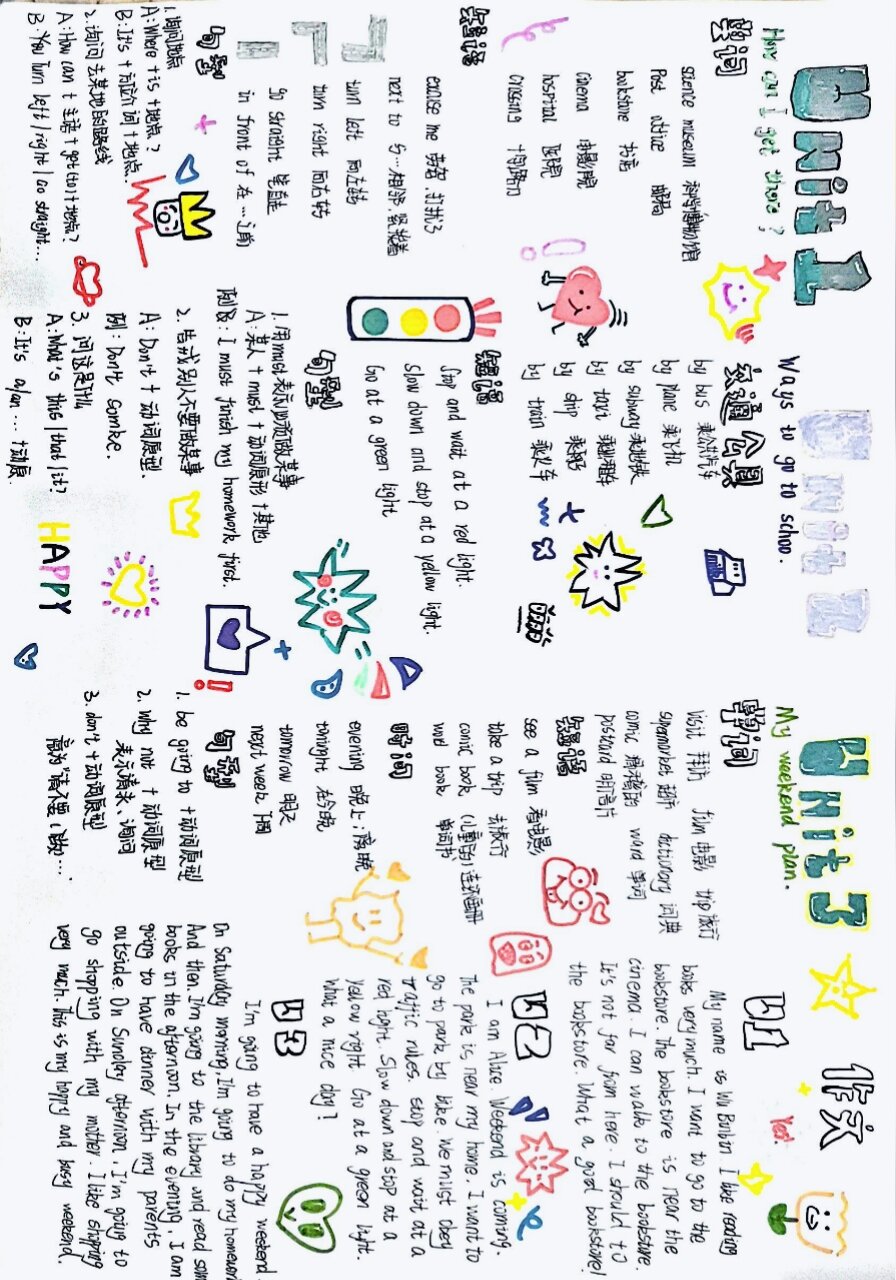 Unit 1
How can I get there?
单词
science museum 科学博物馆
Post office 邮局
bookstore 书店
cinema 电影院
hospital 医院
crossing 十字路口
短语
excuse me 劳驾.打扰了
next to 与…相邻.紧挨着
turn left 向左转
turn right 向右转
Go straight 笔直走
in front of 在…之前
句型
1.询问地点
A:Where + is + 地点?
B:It's + 方位介词 + 地点.
2.询问去某地的路线
A:How can + 主语 + get (to) + 地点?
B:You Turn left / right / Go straight…
Unit 2
Ways to go to schoo.
交通公具
by bus 乘公共汽车
by plane 乘飞机
by subway 乘地铁
by taxi 乘出租车
by ship 乘船
by train 乘火车
短语
Stop and wait at a red light.
Slow down and stop at a yellow light.
Go at a green light
句型
1.用must表示必须做某事
A:某人 + must + 动词原形 + 其他
例句:I must finish my homework first.
2.告戒别人不要做某事
A:Don't + 动词原型.
例:Don't somke.
3.问这是什么
A:What's this / that / it?
B:It's a/an …
HAPPY
milk
Unit 3
My weekend plan.
单词
visit 拜访 film 电影 trip 旅行
supermarket 超市 dictionary 词典
comic 滑稽的 word 单词
postcard 明信片
短语
see a film 看电影
take a trip 去旅行
comic book (儿童的)连环画册
word book 单词书
时间
evening 晚上;傍晚
tonight 在今晚
tomorrow 明天
next week 下周
句型
1. be going to + 动词原型
2. why not + 动词原型
表示请求、询问
3. don't + 动词原型
意为"请不要(做)…"
作文
Yes!
U1
My name is Wu Binbin I like reading
books very much. I want to go to the
bookstore. The bookstore is near the
cinema. I can walk to the bookstore.
It's not far from here. I should to
the bookstore. What a good bookstore!
U2
I am Alice. Weekend is coming.
The park is near my home. I want to
go to park by bike. We must obey
traffic rules. Stop and wait at a
red light. Slow down and stop at a
yellow right Go at a green light.
What a nice day!
U3
I'm going to have a happy weekend.
On Saturday morning, I'm going to do my homework
And then. I'm going to the library and read som
books in the afternoon. In the evening, I am
going to have dinner with my parents
outside. On Sunday afternoon, I'm going to
go shopping with my mother. I like shopping
very much. This is my happy and busy weekend.